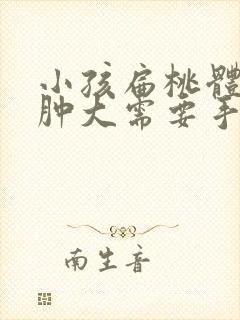 小孩扁桃體
肿大需要手
南生音